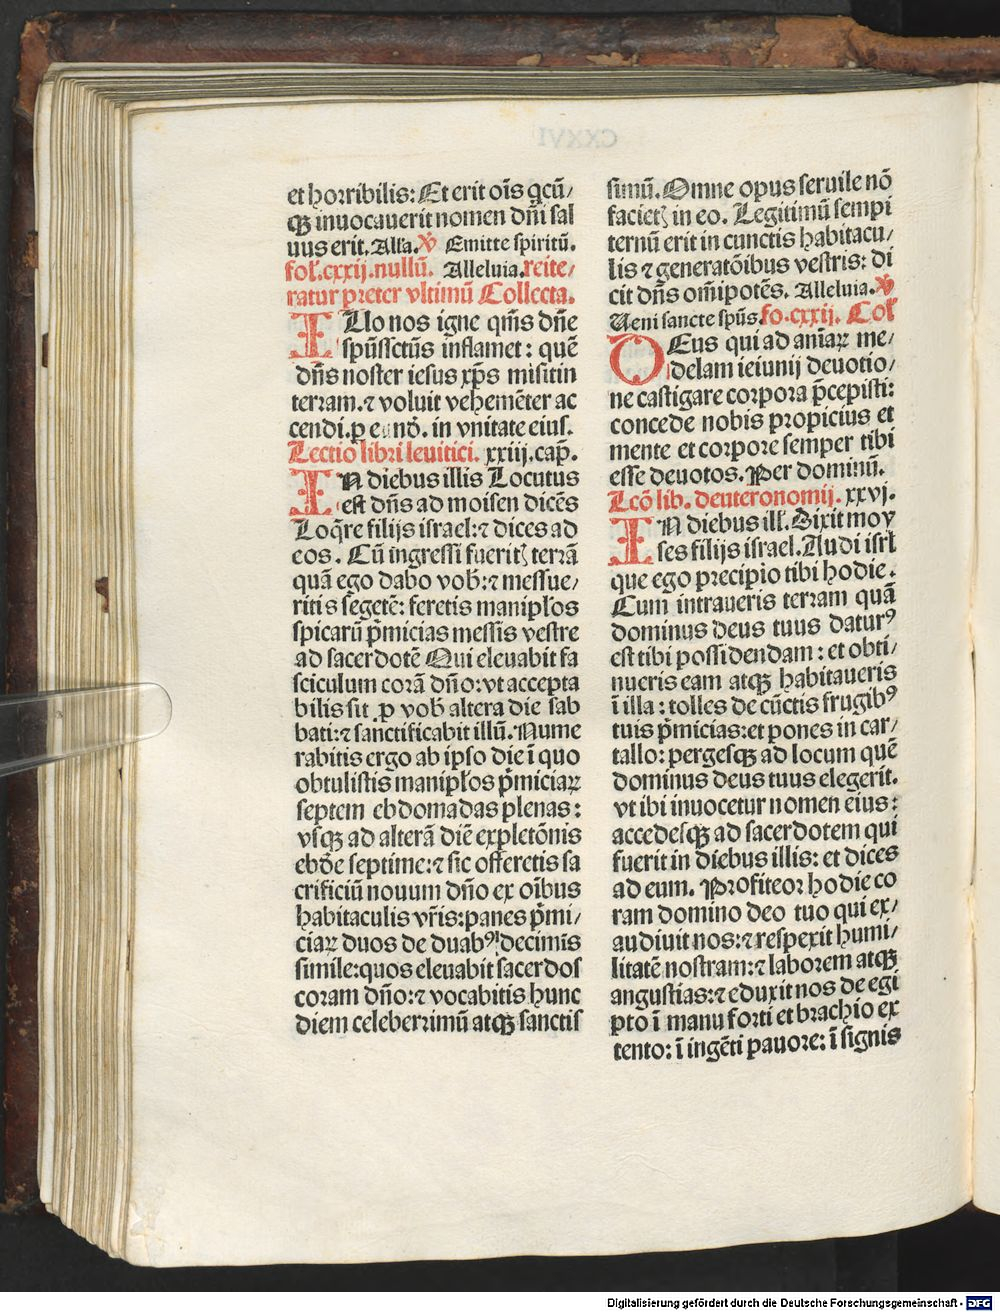 et horribilis: Et erit oīs qcū/
qꝫ inuocauerit nomen dn̄i sal
uus erit. Alľa. ℣ Emitte spiritū.
foľ. cxxij. nullū. Alleluia. reite/
ratur preter vltimū Collecta.
ILlo nos igne qm̄s dn̄e
spūssctūs inflamet: quē
dn̄s noster iesus xp̄s misit in
terram. ⁊ voluit vehemēter ac
cendi. ꝑ e nō. in vnitate eius.
Lectio libri leuitici. xxiij. cap̄.
IN diebus illis Locutus
est dn̄s ad moisen dicēs
Loq̄re filijs israel: ⁊ dices ad
eos. Cū ingressi fueritꝭ terrā
quā ego dabo vob̄: ⁊ messue/
ritis segetē: feretis manipľos
spicarū p̄micias messis vestre
ad sacerdotē Qui eleuabit fa
sciculum corā dn̄o: vt accepta
bilis sit ꝓ vob̄ altera die sab
bati: ⁊ sanctificabit illū. Nume
rabitis ergo ab ipso die ī quo
obtulistis manipľos p̄miciaꝝ
septem ebdomadas plenas:
vsqꝫ ad alterā diē expletōnis
ebđe septime: ⁊ sic offeretis sa
crificiū nouum dn̄o ex oībus
habitaculis vr̄is: panes p̄mi/
ciaꝝ duos de duabꝰ decimis
simile: quos eleuabit sacerdos
coram dn̄o: ⁊ vocabitis hunc
diem celeberrimū atqꝫ sanctis
simū. Omne opus seruile nō
facietꝭ in eo. Legitimū sempi
ternū erit in cunctis habitacu/
lis ⁊ generatōibus vestris: di
cit dn̄s om̄ipotēs. Alleluia. ℣
Ueni sancte spūs. fo. cxxij. Coľ
DEus qui ad animaꝝ me/
delam ieiunij deuotio/
ne castigare corpora p̄cepisti:
concede nobis propicius et
mente et corpore semper tibi
esse deuotos. Per dominū.
Lcō lib. deuteronomij. xxvj.
IN diebus ilľ. Dixit moy
ses filijs israel. Audi isrľ
que ego precipio tibi hodie.
Cum intraueris terram quā
dominus deus tuus daturꝰ
est tibi possidendam: et obti/
nueris eam atqꝫ habitaueris
ī illa: tolles de cūctis frugibꝰ
tuis p̄micias: et pones in car/
tallo: pergesqꝫ ad locum quē
dominus deus tuus elegerit.
vt ibi inuocetur nomen eius:
accedesqꝫ ad sacerdotem qui
fuerit in diebus illis: et dices
ad eum. Profiteor hodie co
ram domino deo tuo qui ex/
audiuit nos: ⁊ respexit humi/
litatē nostram: ⁊ laborem atqꝫ
angustias: ⁊ eduxit nos de egi
pto ī manu forti et brachio ex
tento: ī ingēti pauore: ī signis
Digitalisierung gefördert durch die Deutsche Forschungsgemeinschaft - DFG